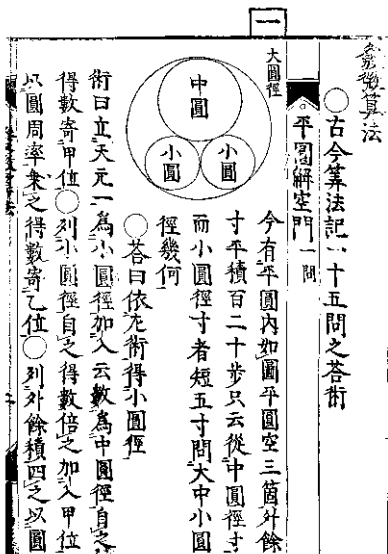 一
發微算法
○古今算法記一十五問之荅術
平圓解空門一問
今有平圓内如圖平圓空三箇外餘
寸平積百二十步只云從中圓徑寸
而小圓徑寸者短五寸問大中小圓
徑幾何
○荅曰依左術得小圓徑
術曰立天元一為小圓徑加入云數為中圓徑自之
得數寄甲位○列小圓徑自之得數倍之加入甲位
以圓周率乗之得數寄乙位○列外餘積四之以圓
大圓徑
中圓
小圓
小圓